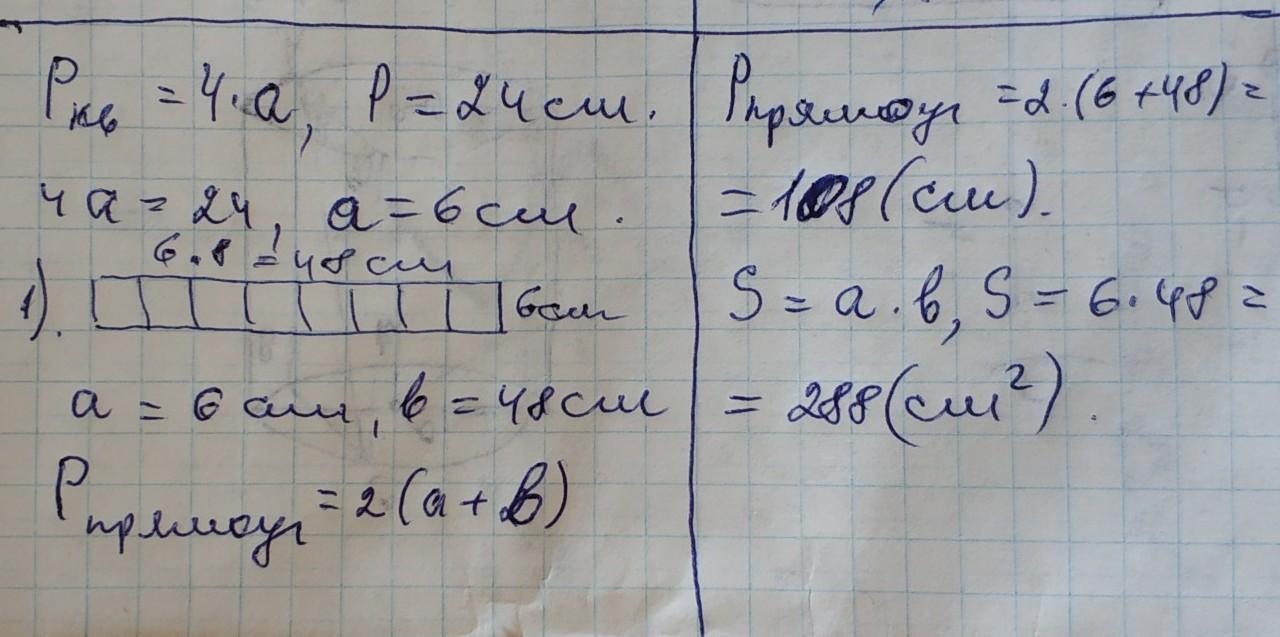 Pкв = 4·a, P = 24 см.
4a = 24, a = 6 см.
6·8 = 48 см
1). 6см
a = 6 см, b = 48 см
Pпрямоуг = 2(a + b)
Pпрямоуг = 2·(6 + 48) =
= 108 (см).
S = a·b, S = 6·48 =
= 288 (см²).